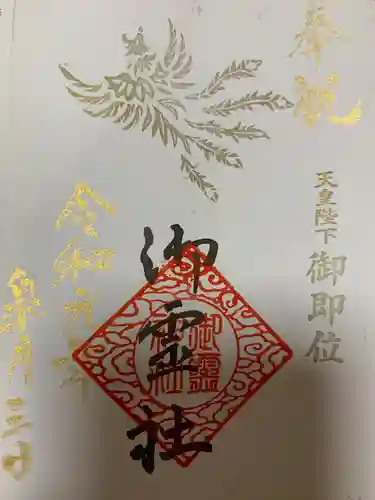 奉祝
天皇陛下御即位
御霊社
御靈社
令和元年
皐月三日